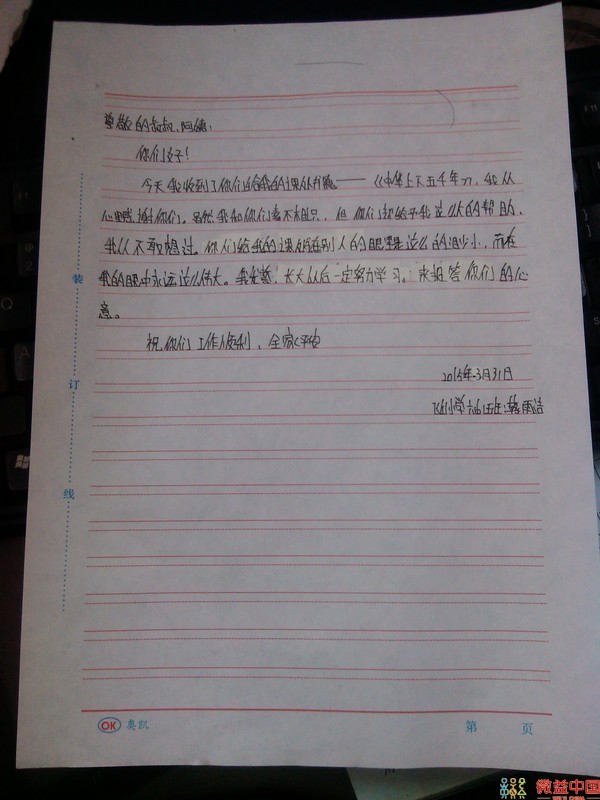 尊敬的叔叔、阿姨:
你们好!
今天我收到了你们送给我的课外书——《中华上下五千年》,我从
心里感谢你们。虽然我和你们素不相识,但你们却给予我这么大的帮助,
我从不敢想过。你们给我的课外书在别人的眼里是这么的渺小,而在
我的眼中永远这么伟大。我发誓,长大以后一定努力学习。来报答你们的心
意。
祝你们工作顺利、全家平安
2015年3月31日
小学 班:韩雨洁
装
订
线
OK 奥凯
第 页
微益中国